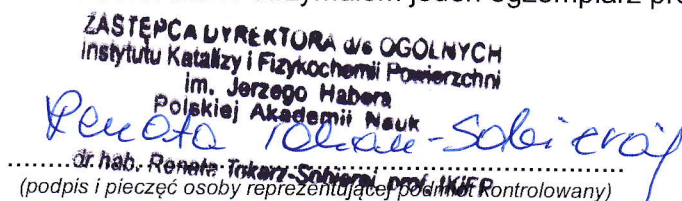 otrzymałem jeden egzemplarz
ZASTĘPCA DYREKTORA d/s OGÓLNYCH
Instytutu Katalizy i Fizykochemii Powierzchni
im. Jerzego Habera
Polskiej Akademii Nauk
Renata Tokarz-Sobieraj
dr hab. Renata Tokarz-Sobieraj, prof. IKiFP
(podpis i pieczęć osoby reprezentującej podmiot kontrolowany)